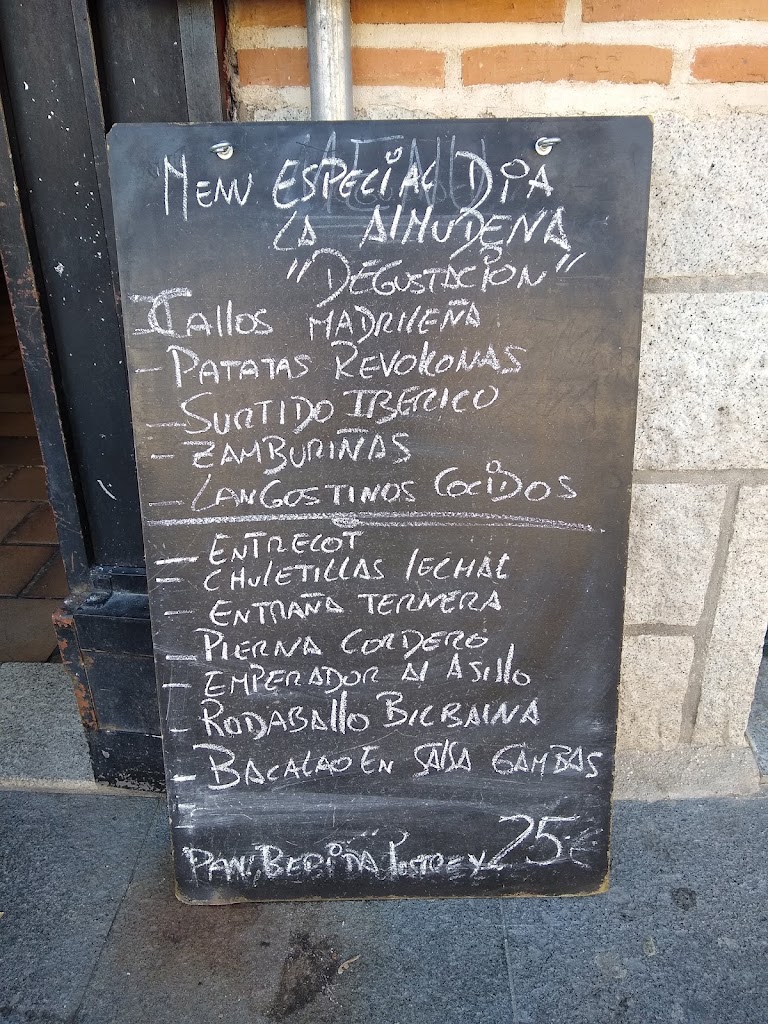 MENU ESPECIAL DIA
LA ALMUDENA
"DEGUSTACION"
CALLOS MADRILEÑA
- PATATAS REVOLCONAS
- SURTIDO IBERICO
- ZAMBURIÑAS
- LANGOSTINOS COCIDOS
- ENTRECOT
- CHULETILLAS LECHAL
- ENTRAÑA TERNERA
- PIERNA CORDERO
- EMPERADOR AL ASILLO
- RODABALLO BILBAINA
- BACALAO EN SALSA GAMBAS
PAN, BEBIDA, POSTRE Y 25 €